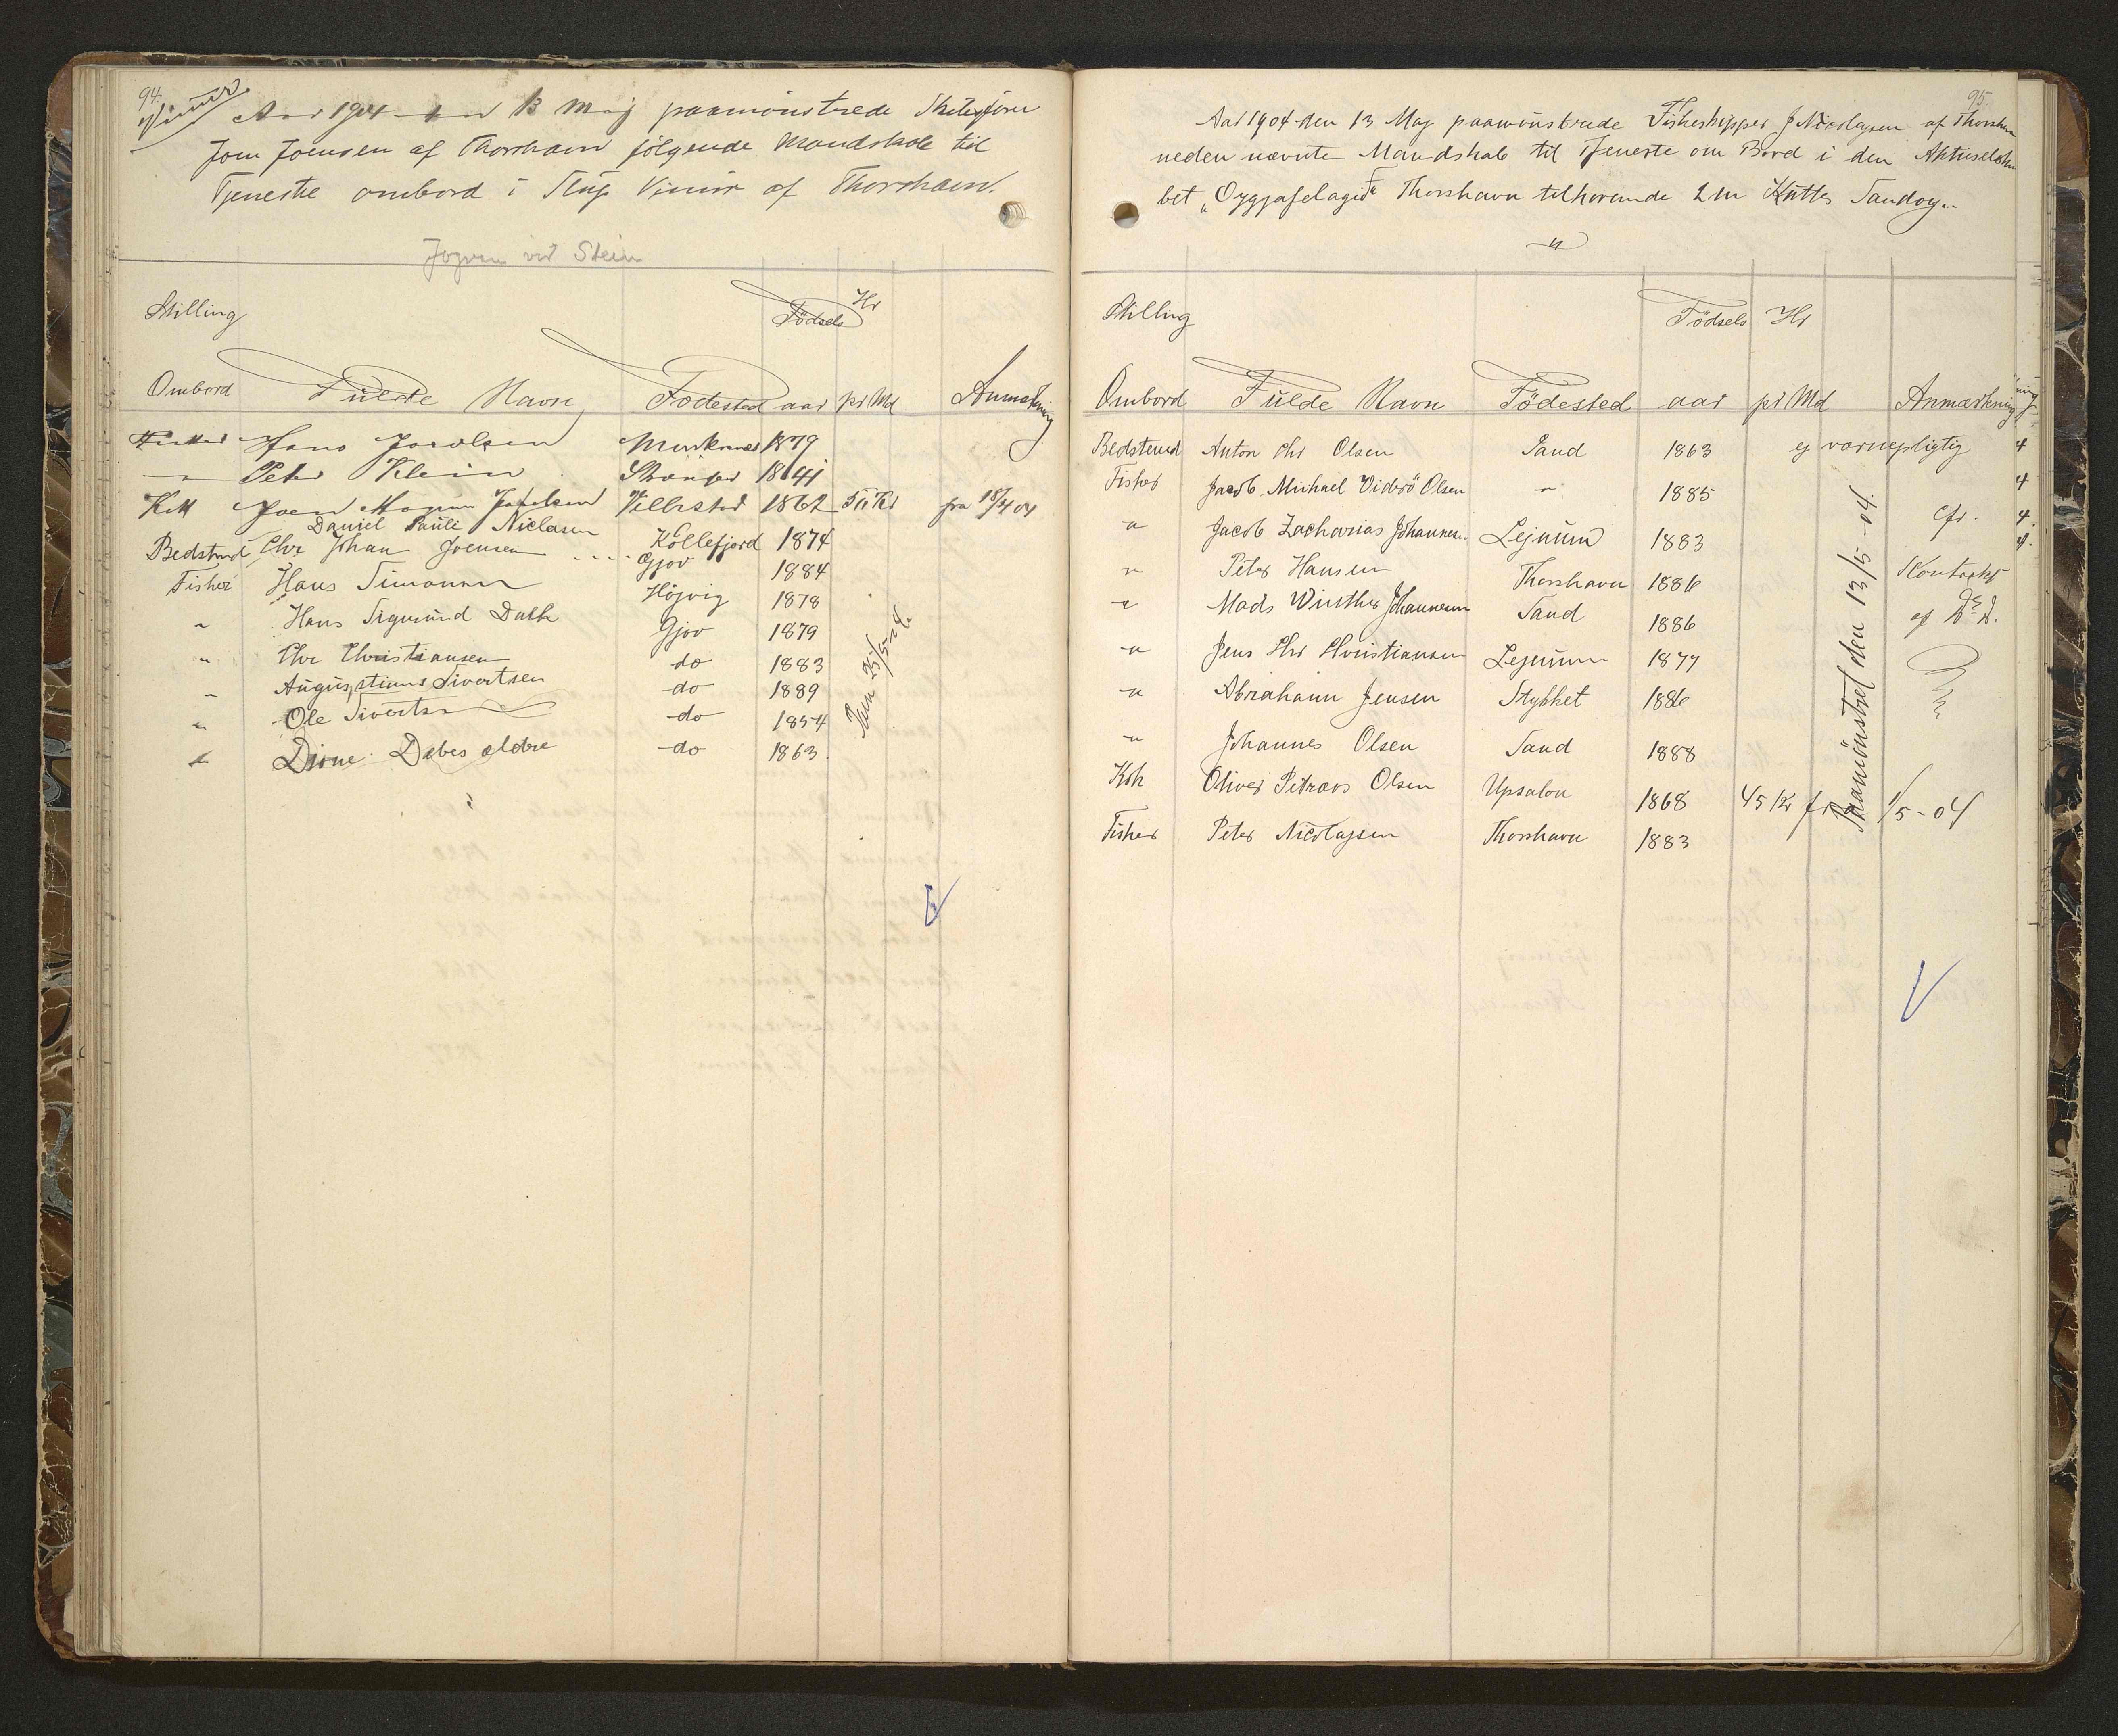 94.
Vimur
Aar 1904 den 13 Maj paamönstrede Skibsförer
Joen Joensen af Thorshavn fölgende Mandskab til
Tjeneste ombord i Slup Vimur af Thorshavn.
Jogvan vid Stein
Stilling Födsels Kr
Ombord Fulde Navn Födested aar pr Md Anmærkning
Hans Jacobsen 1879
" Peter Klein
Kok Joen Magnus Jacobsen Vellestad 1862 fra 15/4 04
Daniel Pauli Niclasen
Bedstmd Chr Johan Joensen Kollefjord 1874
Gjov 1884
Fisker Hans Simonsen Höjvig 1878
" Hans Sigmund Dalh Gjov 1879
" Chr Christiansen do 1883
" Augustinus Sivertsen do 1889
" Ole Sivertsen do 1854
" Debes ældre do 1863.
25/5-04
95.
Aar 1904 den 13 Maj paamönstrede Fiskeskipper J Nicolajsen af Thorshavn
neden nævnte Mandskab til Tjeneste om Bord i den Aktieselska
bet „Oyggjafelagid" Thorshavn tilhorende Kutter Sandoy..
"
Stilling Födsels Kr
Ombord Fulde Navn Födested aar pr Md Anmærkning
Bedstemd Anton Chr Olsen Sand 1863 ej værnepligtig 4
Fisker Jacob Michael Viderö Olsen " 1885 4
" Jacob Zacharias Johannesen. Lejnum 1883 cfr. 4.
" Peter Hansen Thorshavn 1886 Kontrakt 4.
" Mads Winther Johannesen Sand 1886
" Jens Chr Christiansen Lejnum 1877
" Abraham Jensen Stykket 1886
" Johannes Olsen Sand 1888
Kok Oliver Petræus Olsen Upsalon 1868 45 Kr fra 1/5-04
Fisker Peter Nicolajsen Thorshavn 1883
Paamönstret den 13/5-04.